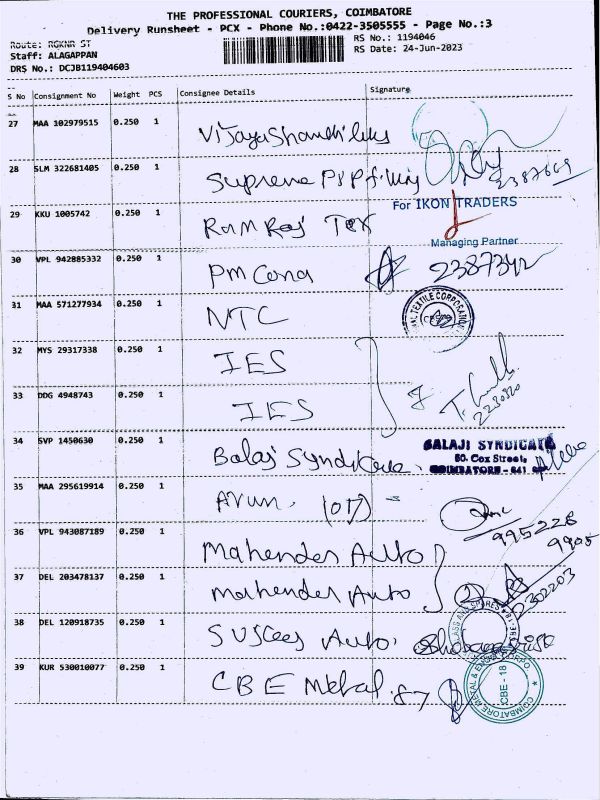 THE PROFESSIONAL COURIERS, COIMBATORE
Delivery Runsheet - PCX - Phone No.:0422-3505555 - Page No.:3
Route: RGKNR ST
RS No.: 1194046
Staff: ALAGAPPAN
RS Date: 24-Jun-2023
DRS No.: DCJB119404603
S No Consignment No Weight PCS Consignee Details Signature
27 MAA 102979515 0.250 1
28 SLM 322681405 0.250 1 Supreme
2387669
29 KKU 1005742 0.250 1 Ram Raj Tex
For IKON TRADERS
Managing Partner
30 VPL 942885332 0.250 1 PM Cona
2387342
31 MAA 571277934 0.250 1 NTC
TEXTILE CORPORATION
32 MYS 29317338 0.250 1 IES
33 DDG 4948743 0.250 1 IES
34 SVP 1450630 0.250 1 Balaj Syndicate
BALAJI SYNDICATE
60, Cox Street,
COIMBATORE - 641
35 MAA 295619914 0.250 1 Arun. (OT) -
995228
9905
36 VPL 943087189 0.250 1 Mahender Auto
37 DEL 203478137 0.250 1 Mahender Auto
2
38 DEL 120918735 0.250 1 Auto.
GLASS AND SPARES
39 KUR 530010077 0.250 1 CBE Metal. 87
COIMBATORE METAL &
CBE - 18